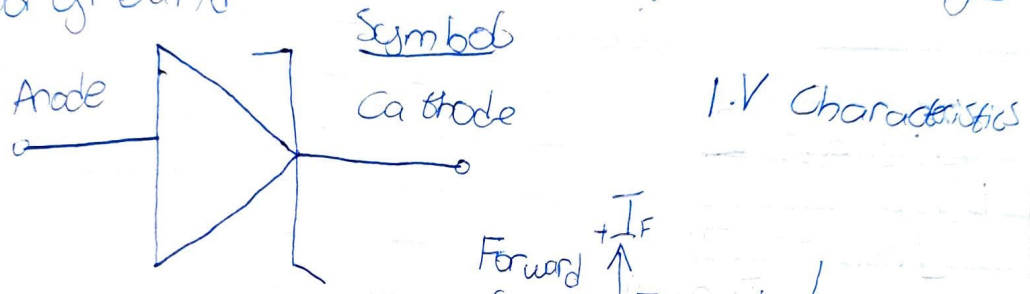 Symbol
Anode
Cathode
I.V Characteristics
+IF
Forward